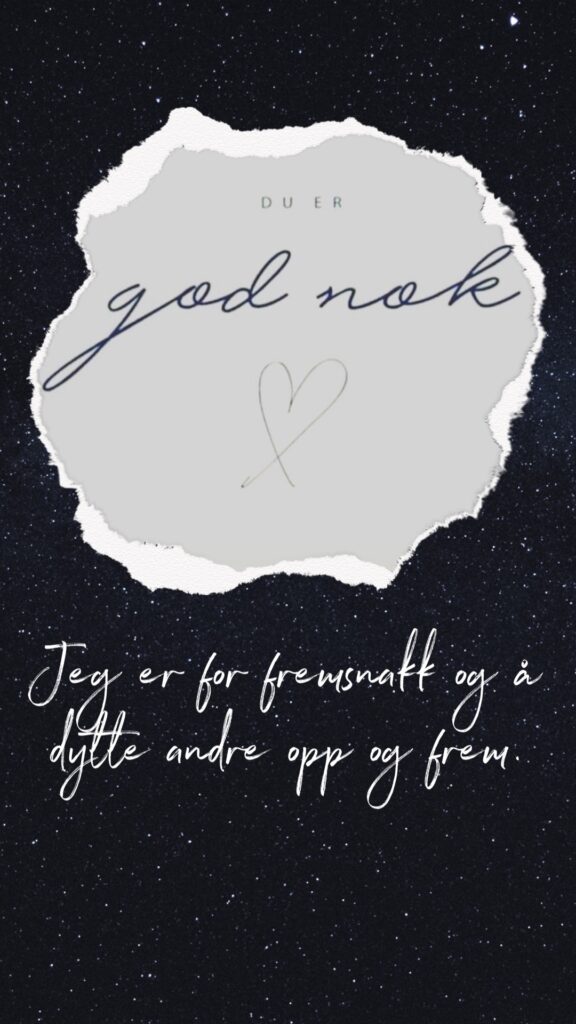 DU ER
god nok
Jeg er for fremsnakk og å
dytte andre opp og frem.